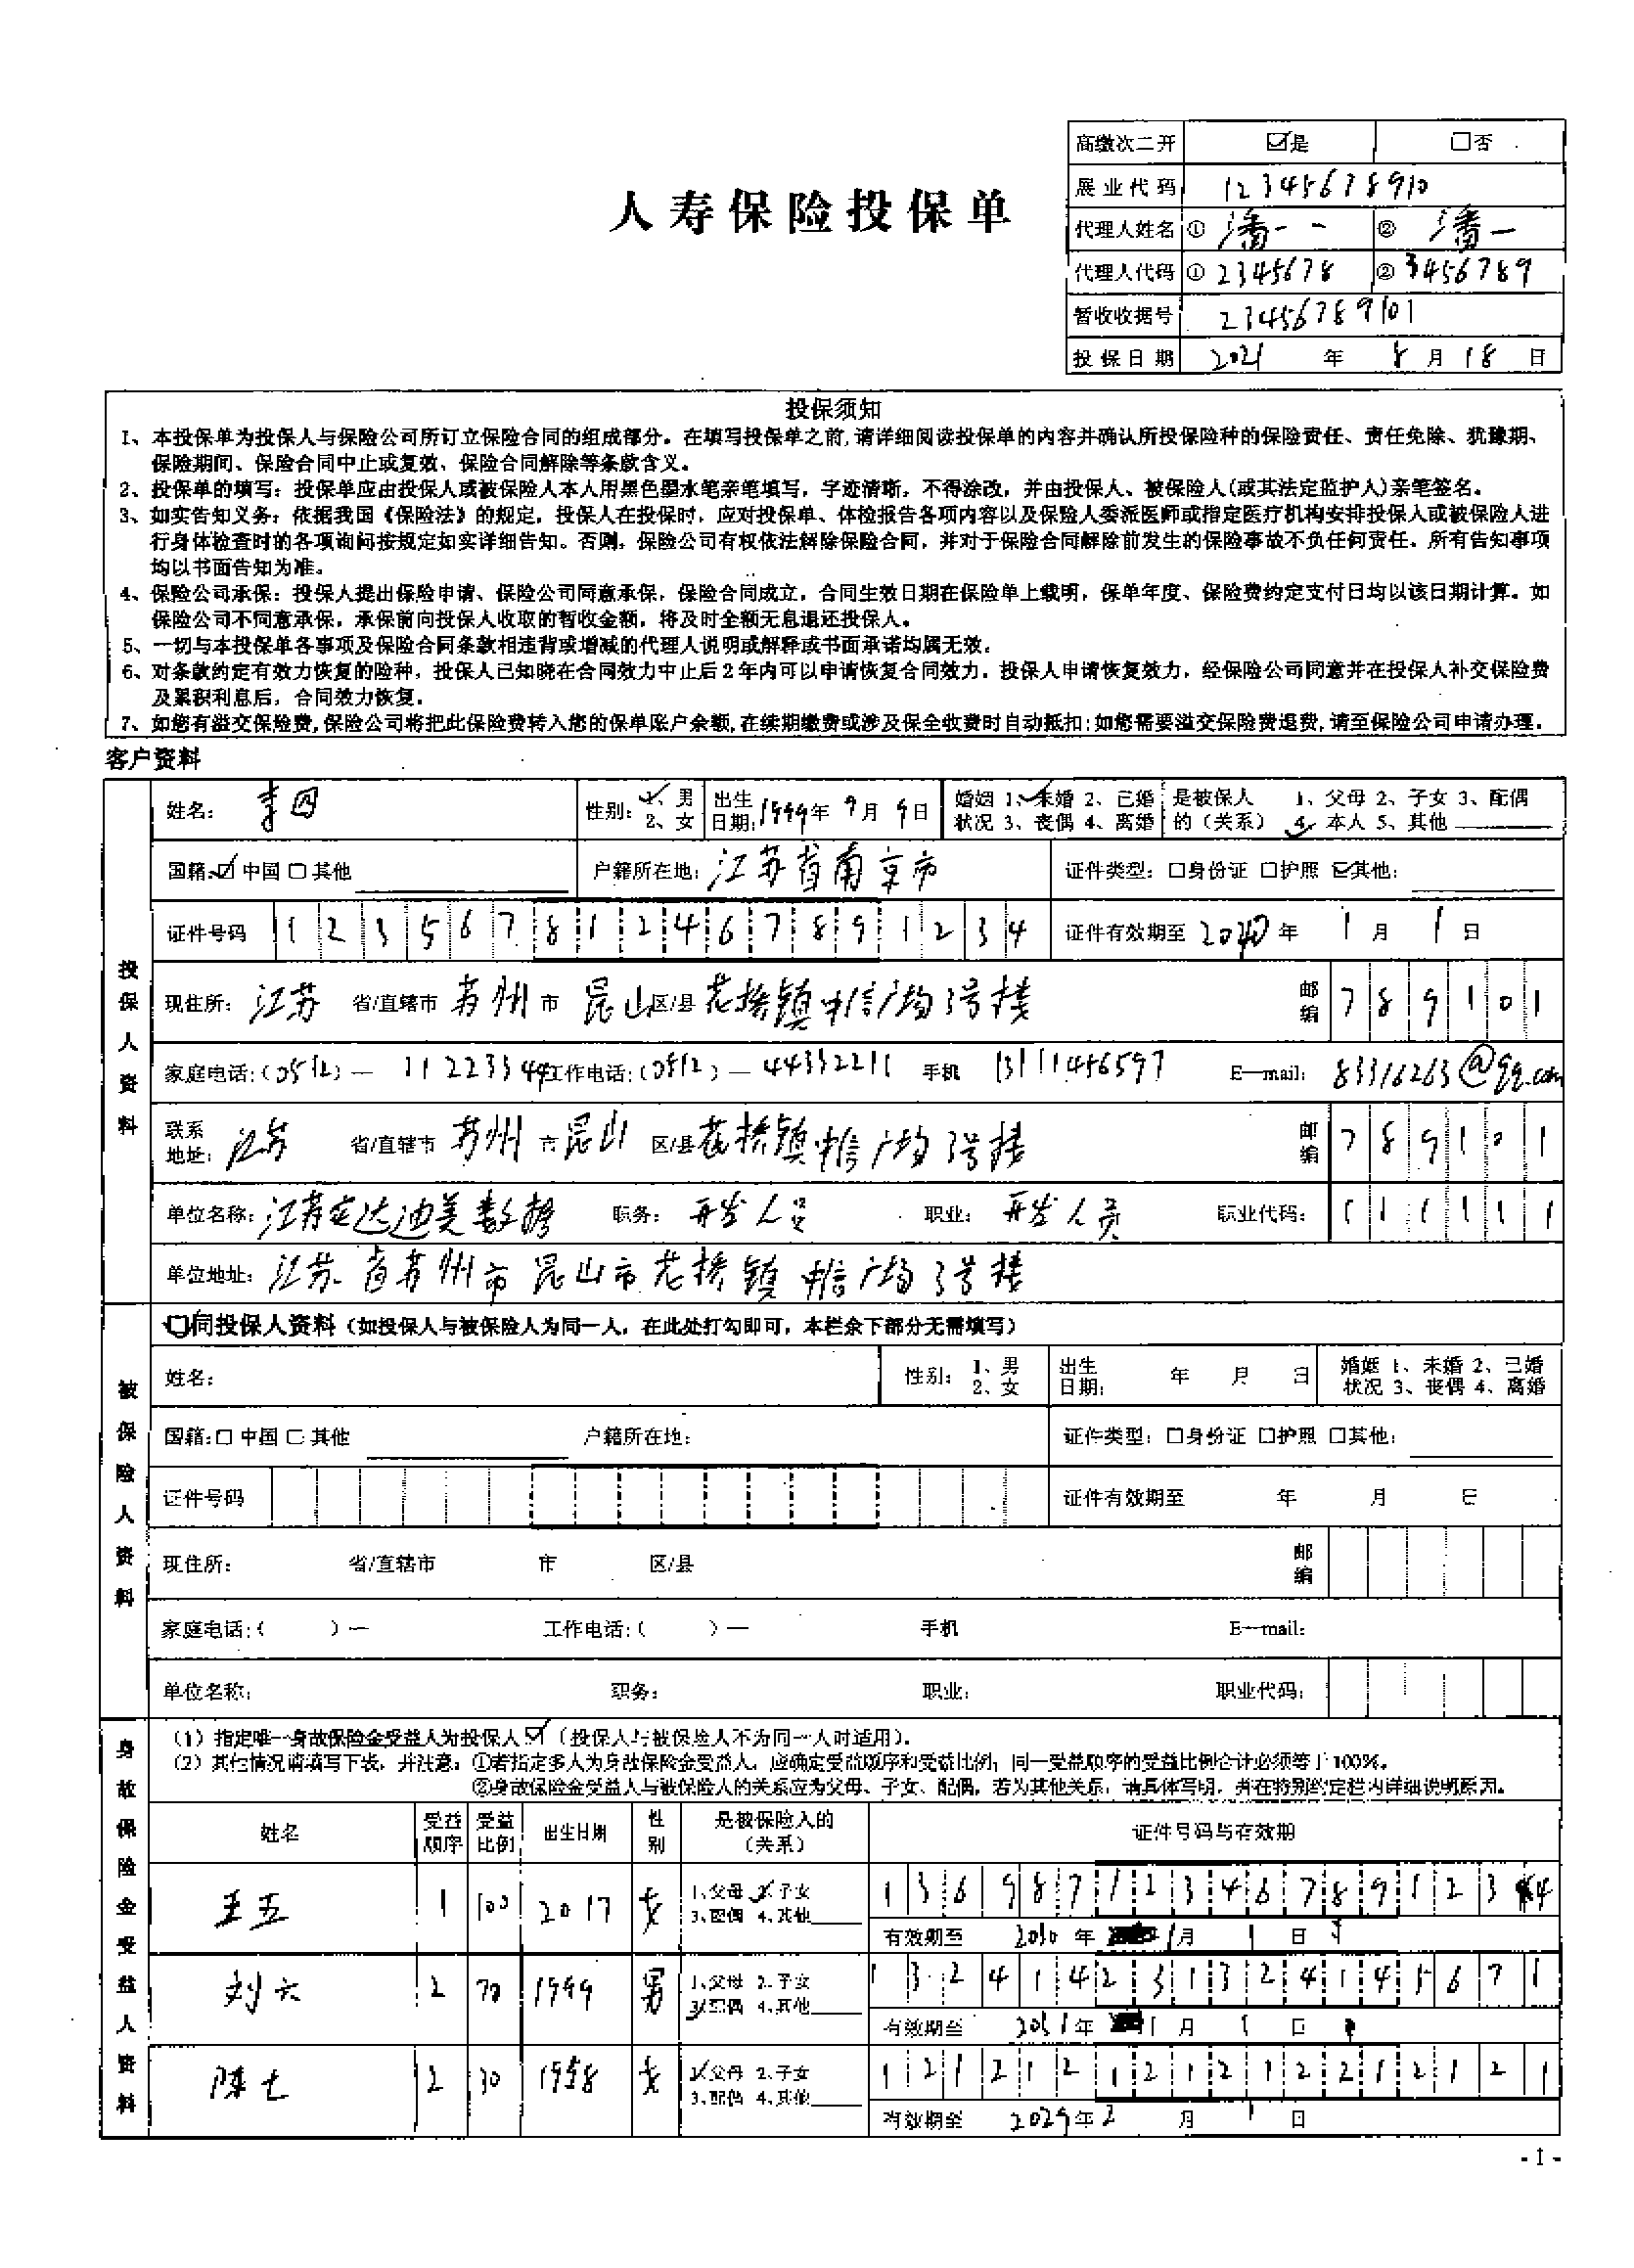 高缴次二开 ☑是 □否
展业代码 12345678910
人寿保险投保单
代理人姓名 ① 潘一一 ② 潘一
代理人代码 ① 2345678 ② 3456789
暂收收据号 23456789101
投保日期 2021 年 8 月 18 日
投保须知
1、本投保单为投保人与保险公司所订立保险合同的组成部分。在填写投保单之前,请详细阅读投保单的内容并确认所投保险种的保险责任、责任免除、犹豫期、
保险期间、保险合同中止或复效、保险合同解除等条款含义。
2、投保单的填写：投保单应由投保人或被保险人本人用黑色墨水笔亲笔填写，字迹清晰，不得涂改，并由投保人、被保险人(或其法定监护人)亲笔签名。
3、如实告知义务：依据我国《保险法》的规定，投保人在投保时，应对投保单、体检报告各项内容以及保险人委派医师或指定医疗机构安排投保人或被保险人进
行身体检查时的各项询问按规定如实详细告知。否则，保险公司有权依法解除保险合同，并对于保险合同解除前发生的保险事故不负任何责任。所有告知事项
均以书面告知为准。
4、保险公司承保：投保人提出保险申请、保险公司同意承保，保险合同成立，合同生效日期在保险单上载明，保单年度、保险费约定支付日均以该日期计算。如
保险公司不同意承保，承保前向投保人收取的暂收金额，将及时全额无息退还投保人。
5、一切与本投保单各事项及保险合同条款相违背或增减的代理人说明或解释或书面承诺均属无效。
6、对条款约定有效力恢复的险种，投保人已知晓在合同效力中止后2年内可以申请恢复合同效力。投保人申请恢复效力，经保险公司同意并在投保人补交保险费
及累积利息后，合同效力恢复。
7、如您有溢交保险费,保险公司将把此保险费转入您的保单账户余额,在续期缴费或涉及保全收费时自动抵扣;如您需要溢交保险费退费,请至保险公司申请办理。
客户资料
投保人资料
姓名： 李四 性别： 1、男 2、女 出生日期: 1999年 9月 9日 婚姻状况 1、未婚 2、已婚 3、丧偶 4、离婚 是被保人的（关系） 1、父母 2、子女 3、配偶 4、本人 5、其他
国籍:☑ 中国 □ 其他 户籍所在地： 江苏省南京市 证件类型：□身份证 □护照 ☑其他：
证件号码 123567812467891234 证件有效期至 2040 年 1 月 1 日
现住所： 江苏 省/直辖市 苏州 市 昆山 区/县 花桥镇中信广场3号楼 邮编 789101
家庭电话:（0512）— 11223344 工作电话:（0512）— 44332211 手机 13111456597 E—mail: 83316263@qq.com
联系地址： 江苏 省/直辖市 苏州 市 昆山 区/县 花桥镇中信广场3号楼 邮编 789101
单位名称： 江苏宏达迪美数据 职务： 开发人员 职业： 开发人员 职业代码： 111111
单位地址： 江苏省苏州市昆山市花桥镇中信广场3号楼
被保险人资料
□同投保人资料（如投保人与被保险人为同一人，在此处打勾即可，本栏余下部分无需填写）
姓名： 性别： 1、男 2、女 出生日期： 年 月 日 婚姻状况 1、未婚 2、已婚 3、丧偶 4、离婚
国籍:□ 中国 □ 其他 户籍所在地： 证件类型：□身份证 □护照 □其他：
证件号码 证件有效期至 年 月 日
现住所： 省/直辖市 市 区/县 邮编
家庭电话:（ ）— 工作电话:（ ）— 手机 E—mail:
单位名称： 职务： 职业： 职业代码：
身故保险金受益人资料
（1）指定唯一身故保险金受益人为投保人☑（投保人与被保险人不为同一人时适用）。
（2）其他情况请填写下表，并注意：①若指定多人为身故保险金受益人，应确定受益顺序和受益比例，同一受益顺序的受益比例合计必须等于100%。
②身故保险金受益人与被保险人的关系应为父母、子女、配偶，若为其他关系，请具体写明，并在特别约定栏内详细说明原因。
姓名 受益顺序 受益比例 出生日期 性别 是被保险人的（关系） 证件号码与有效期
王五 1 100 2017 女 1、父母 2、子女 3、配偶 4、其他 136987123467891234
有效期至 2010 年 1月 1 日
刘六 2 70 1999 男 1、父母 2、子女 3、配偶 4、其他 132414231324145671
有效期至 2031年 1 月 1 日
陈七 2 30 1958 女 1、父母 2、子女 3、配偶 4、其他 121212121212212121
有效期至 2029年 2 月 1 日
- 1 -